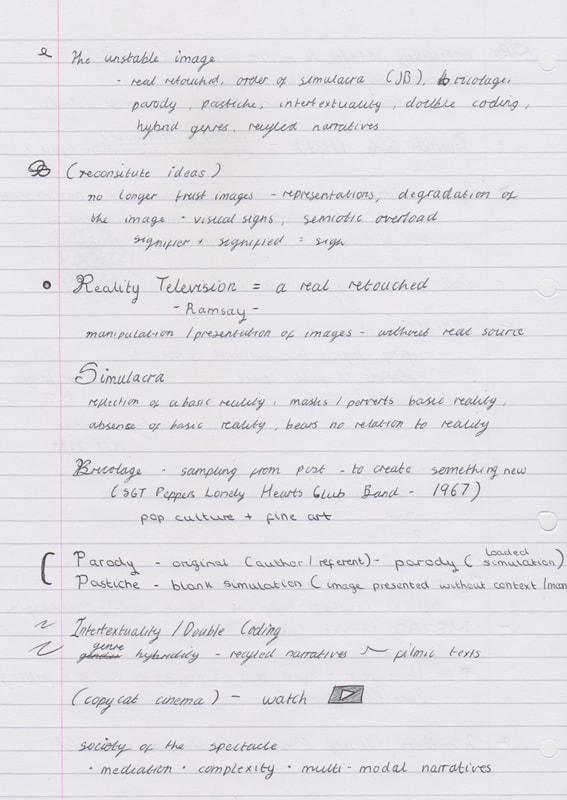 The unstable image
- real retouched, order of simulacra (JB), bricolage,
parody, pastiche, intertextuality, double coding,
hybrid genres, recycled narratives
(reconsitute ideas)
no longer trust images - representations, degradation of
the image · visual signs, semiotic overload
signifier + signified = sign
Reality Television = a real retouched
- Ramsay -
manipulation / presentation of images - without real source
Simulacra
reflection of a basic reality, masks / perverts basic reality,
absence of basic reality, bears no relation to reality
Bricolage · sampling from past - to create something new
(SGT Peppers Lonely Hearts Club Band - 1967)
pop culture + fine art
Parody - original (author / referent) - parody (loaded simulation)
Pastiche - blank simulation (image presented without context /
Intertextuality / Double Coding
genre hybridity - recyled narratives ~ filmic texts
(copycat cinema) - watch
society of the spectacle
· mediation · complexity · multi-modal narratives